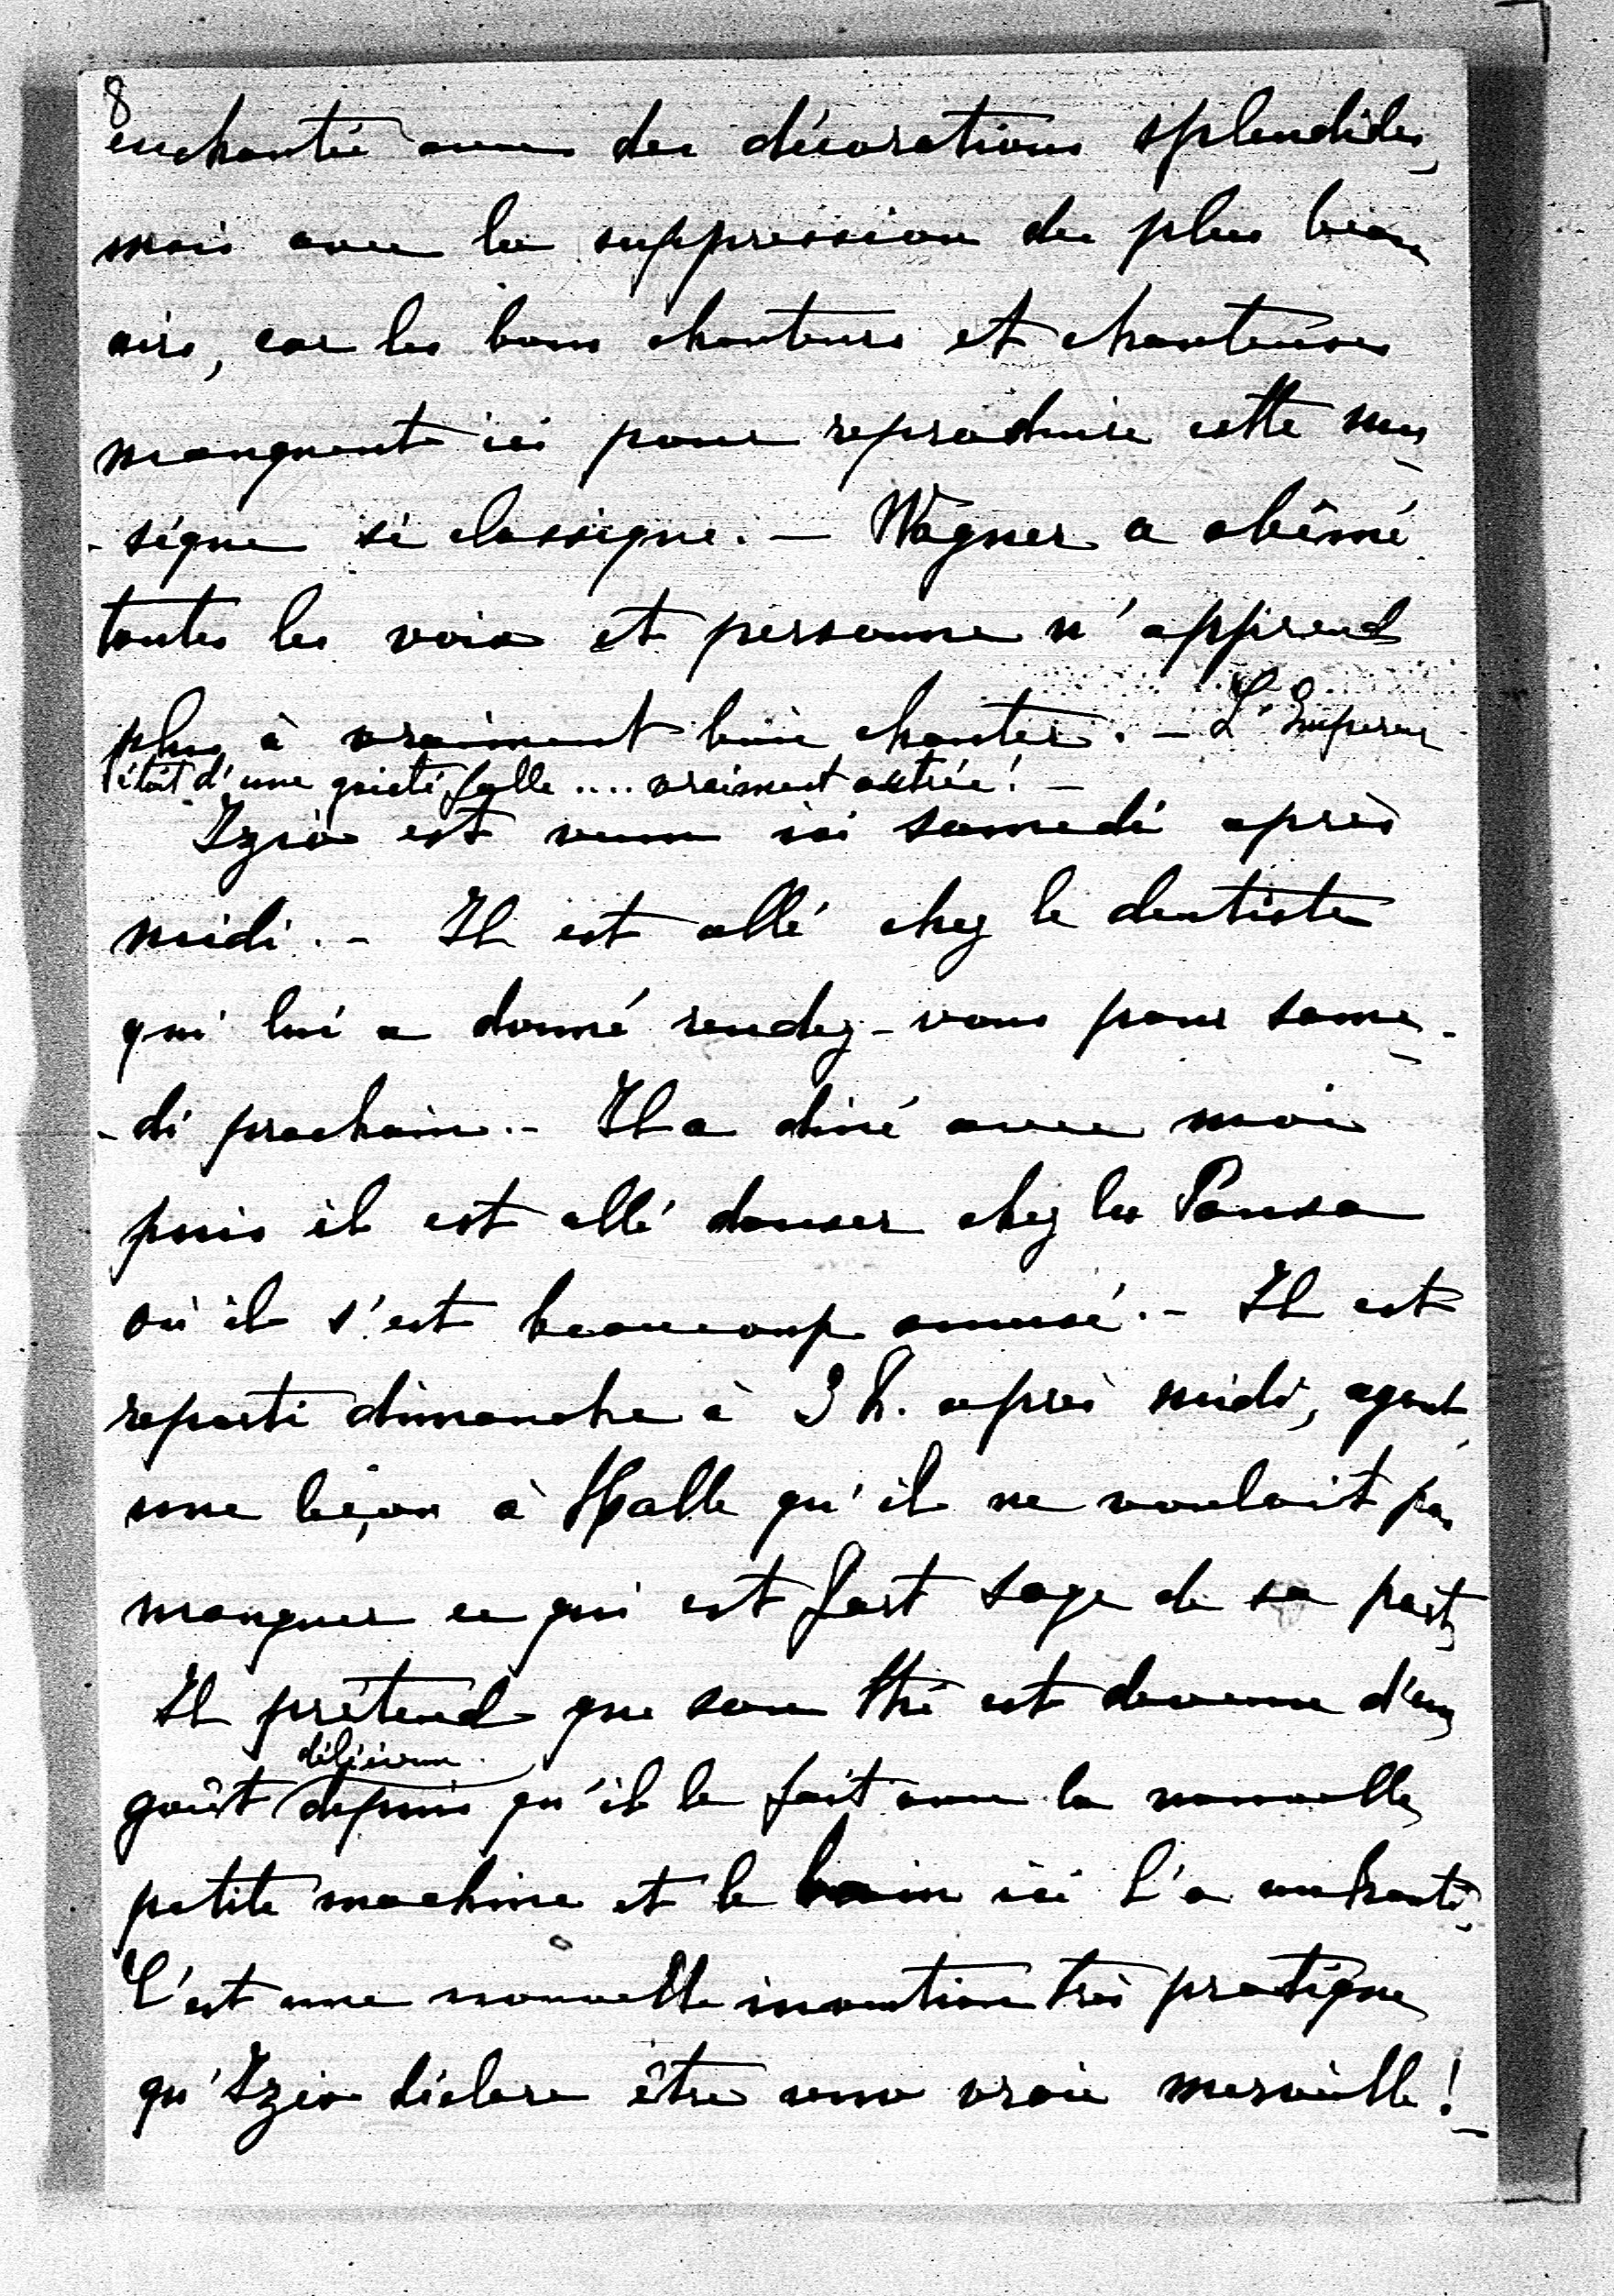 8
enchantée avec des décorations splendides,
mais avec la suppression des plus beaux
airs, car les bons chanteurs et chanteuses
manquent ici pour reproduire cette mu-
-sique si classique. — Wagner a abîmé
toutes les voix et personne n'apprend
plus à vraiment bien chanter. — L'Empereur
était d'une gaieté folle .... vraiment outrée! —
Izio est venu ici samedi après
midi. — Il est allé chez le dentiste
qui lui a donné rendez-vous pour same-
-di prochain. — Il a diné avec moi
puis il est allé danser chez les Pansa
où il s'est beaucoup amusé. — Il est
reparti dimanche à 3 h. après midi, ayant
une leçon à Halle qu'il ne voulait pas
manquer ce qui est fort sage de sa part.
Il prétend que son thé est devenu d'un
délicieux
goût depuis qu'il le fait avec la nouvelle
petite machine et le bain ici l'a enchanté.
C'est une nouvelle invention très pratique
qu'Izio déclare être une vraie merveille! —